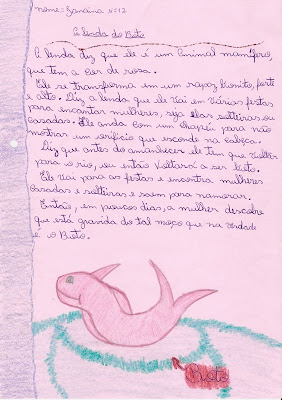 nome= Janaina nº12
A lenda do Boto
A lenda diz que ele é um animal mamífero,
que tem a cor de rosa.
Ele se transforma em um rapaz, bonito, forte
e alto. Diz a lenda que ele vai em várias festas
para encantar mulheres, seja elas solteiras ou
casadas. Ele anda com um chapéu para não
mostrar um orifício que esconde na cabeça.
Diz que antes do amanhecer ele tem que voltar
para o rio, ou então voltará a ser boto.
Ele vai para as festas e encontra mulheres
casadas e solteiras e saem para namorar.
Então, em poucos dias, a mulher descobre
que está gravida do tal moço que na verdade
é o Boto.
Boto